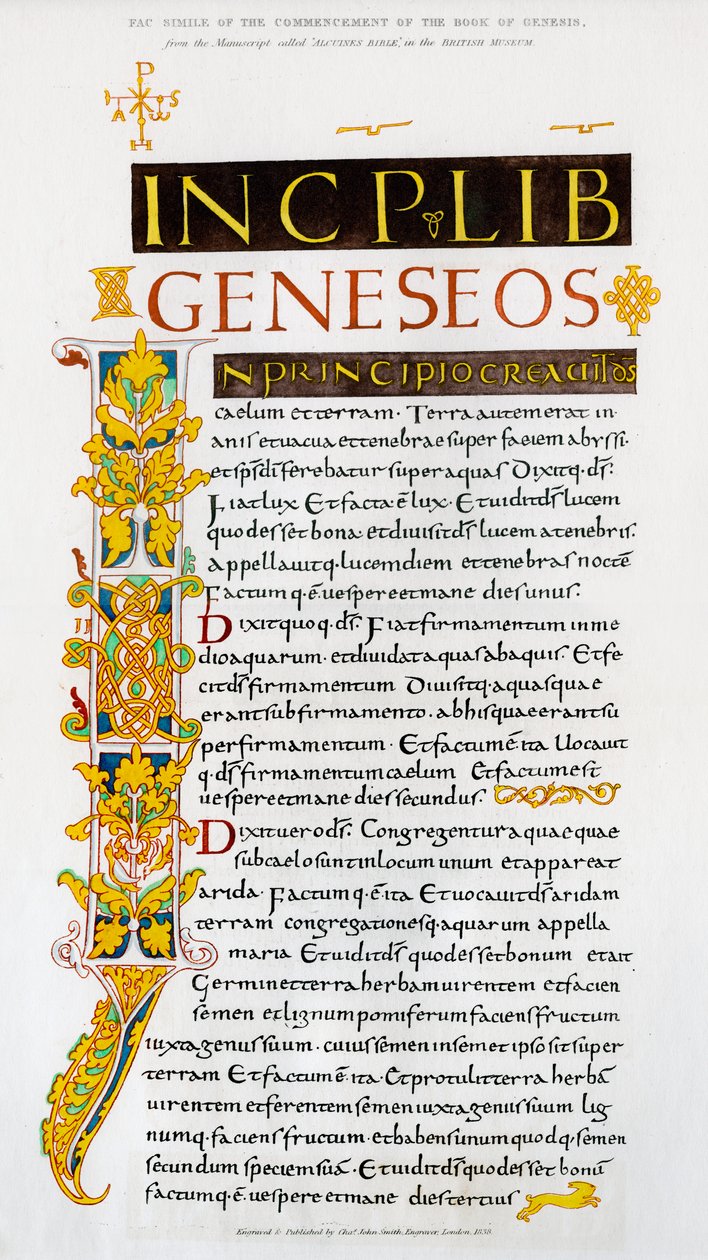 FAC SIMILE OF THE COMMENCEMENT OF THE BOOK OF GENESIS,
from the Manuscript called "ALCUINES BIBLE", in the BRITISH MUSEUM.
P
A W S
H
INCP LIB
GENESEOS
INPRINCIPIOCREAUITDS
caelum etterram. Terra autemerat in
anisetuacua ettenebrae super faciem abyssi.
etspsdiferebatur superaquas Dixitq. ds.
Fiatlux Etfacta ē lux. Etuiditds lucem
quodesset bona etdiuisitds lucem atenebris.
appellauitq. lucemdiem ettenebras noctē
Factumq. ē. uespereetmane diesunus.
Dixitquoq. ds. Fiatfirmamentum inme
dioaquarum. etdiuidataquasabaquis. Etfe
citds firmamentum Diuisitq. aquasquae
erantsubfirmamento. abhisquaeerantsu
perfirmamentum. Etfactumē. ita Uocauit
q. ds firmamentumcaelum Etfactumest
uespereetmane diessecundus.
Dixituerods. Congregenturaquaequae
subcaelosuntinlocum unum etappareat
arida. Factumq. ē. ita Etuocauitds aridam
terram congregationesq. aquarum appella
maria Etuiditds quodessetbonum etait
Germinetterraherbamuirentem etfacien
semen etlignumpomiferumfaciensfructum
iuxtagenussuum. cuiussemeninsemetipsositsuper
terram Etfactumē. ita. Etprotulitterra herbā
uirentem etferentemsemeniuxtagenussuum lig
numq. faciensfructum. ethabensunumquodq; semen
secundum speciemsuā. Etuiditds quodesset bonū
factumq. ē. uespereetmane diestertius
Engraved & Published by Chas. John Smith, Engraver, London, 1838.